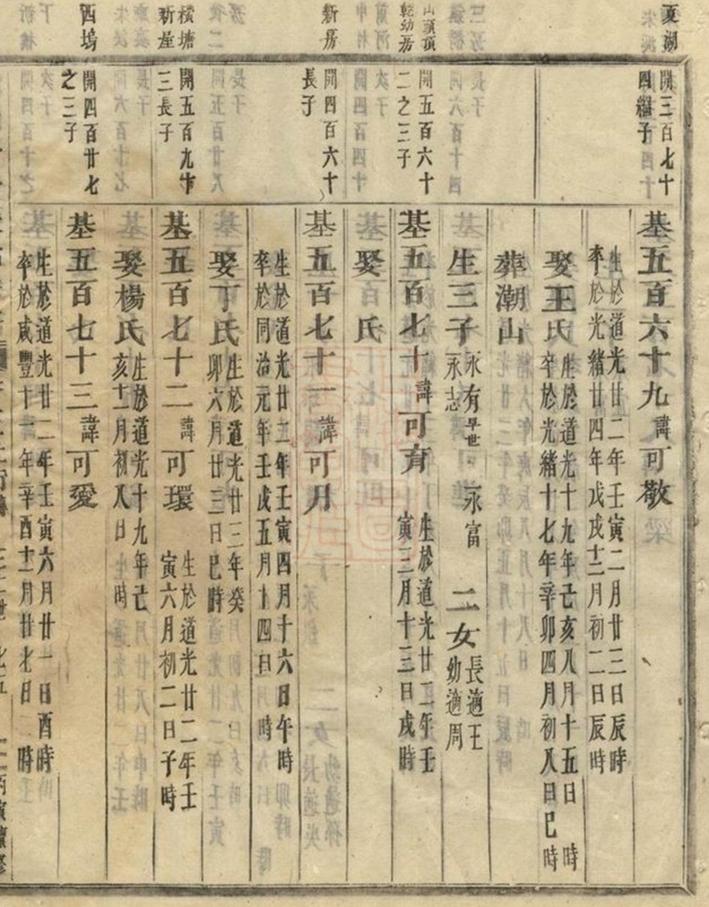 夏湖
開三百七十
四繼子
基五百六十九諱可敬
生於道光廿二年壬寅二月廿三日辰時
卒於光緒廿四年戊戌十二月初二日辰時
娶王氏
生於道光十九年己亥八月十五日 時
卒於光緒十七年辛卯四月初八日巳時
葬潮山
生三子 永有早世 永富
永志
二女 長適王
幼適周
山頭頂
乾幼房
開五百六十
二之三子
基五百七十諱可育
生於道光廿二年壬
寅三月十三日戌時
娶 氏
新房
開四百六十
長子
基五百七十一諱可月
生於道光廿二年壬寅四月十六日午時
卒於同治元年壬戌五月十四日 時
娶丁氏
生於道光廿三年癸
卯六月廿三日巳時
橫塘
新屋
開五百九十
三長子
基五百七十二諱可環
生於道光廿二年壬
寅六月初二日子時
娶楊氏
生於道光十九年己
亥十二月初八日 時
西塢
開四百廿七
之三子
基五百七十三諱可愛
生於道光廿二年壬寅六月廿一日酉時
卒於咸豐十一年辛酉十一月廿七日 時